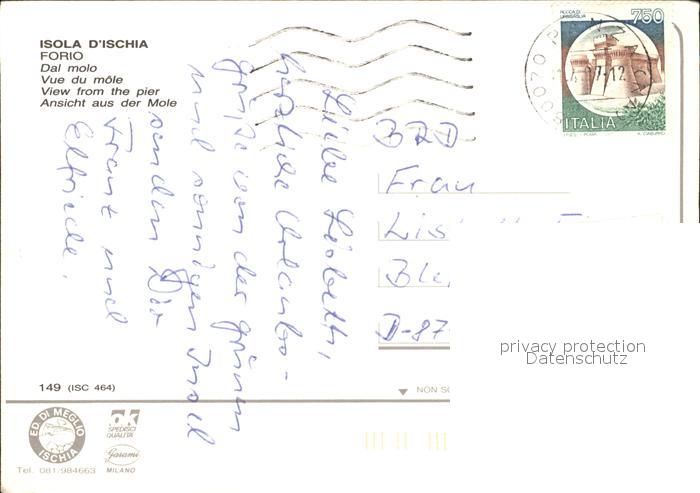 ISOLA D'ISCHIA
FORIO
Dal molo
Vue du môle
View from the pier
Ansicht aus der Mole
Liebe Lisbeth,
herzliche Urlaubs-
grüße von der grünen
und sonnigen Insel
senden Dir
Franz und
Elfriede.
BRD
Frau
Lis
Ble
D-87
ROCCA DI
URBISAGLIA
750
ITALIA
I.P.Z.S. - ROMA
80070
149 (ISC 464)
NON SC
ED. DI MEGLIO
ISCHIA
Tel. 081/984663
ok
SPEDISCI
QUALITÀ
Garami
MILANO
privacy protection
Datenschutz